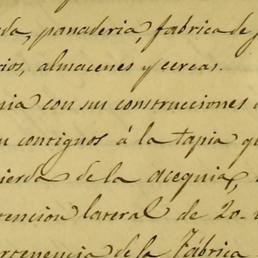 da, panaderia, fabrica de
ios, almacenes y cercas.
nia con sus construcciones
contiguos á la tapia qu
ierda de la acequia,
tencion lateral de 20-
ertenencia de la Fábrica